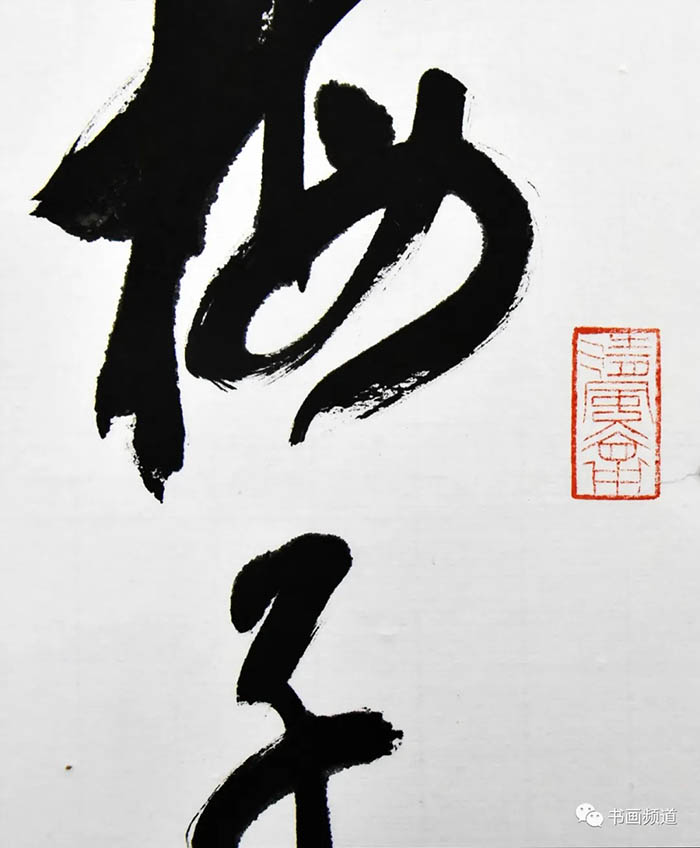 梅
子
书画频道